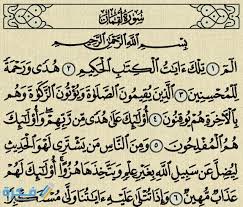 سُورَةُ لُقْمَانَ
بِسْمِ ٱللَّهِ ٱلرَّحْمَٰنِ ٱلرَّحِيمِ
الٓمٓ ١ تِلْكَ ءَايَٰتُ ٱلْكِتَٰبِ ٱلْحَكِيمِ ٢ هُدًى وَرَحْمَةً
لِّلْمُحْسِنِينَ ٣ ٱلَّذِينَ يُقِيمُونَ ٱلصَّلَوٰةَ وَيُؤْتُونَ ٱلزَّكَوٰةَ وَهُم
بِٱلْءَاخِرَةِ هُمْ يُوقِنُونَ ٤ أُو۟لَٰٓئِكَ عَلَىٰ هُدًى مِّن رَّبِّهِمْ ۖ وَأُو۟لَٰٓئِكَ
هُمُ ٱلْمُفْلِحُونَ ٥ وَمِنَ ٱلنَّاسِ مَن يَشْتَرِى لَهْوَ ٱلْحَدِيثِ
لِيُضِلَّ عَن سَبِيلِ ٱللَّهِ بِغَيْرِ عِلْمٍ وَيَتَّخِذَهَا هُزُوًا ۚ أُو۟لَٰٓئِكَ لَهُمْ
عَذَابٌ مُّهِينٌ ٦ وَإِذَا تُتْلَىٰ عَلَيْهِ ءَايَٰتُنَا وَلَّىٰ